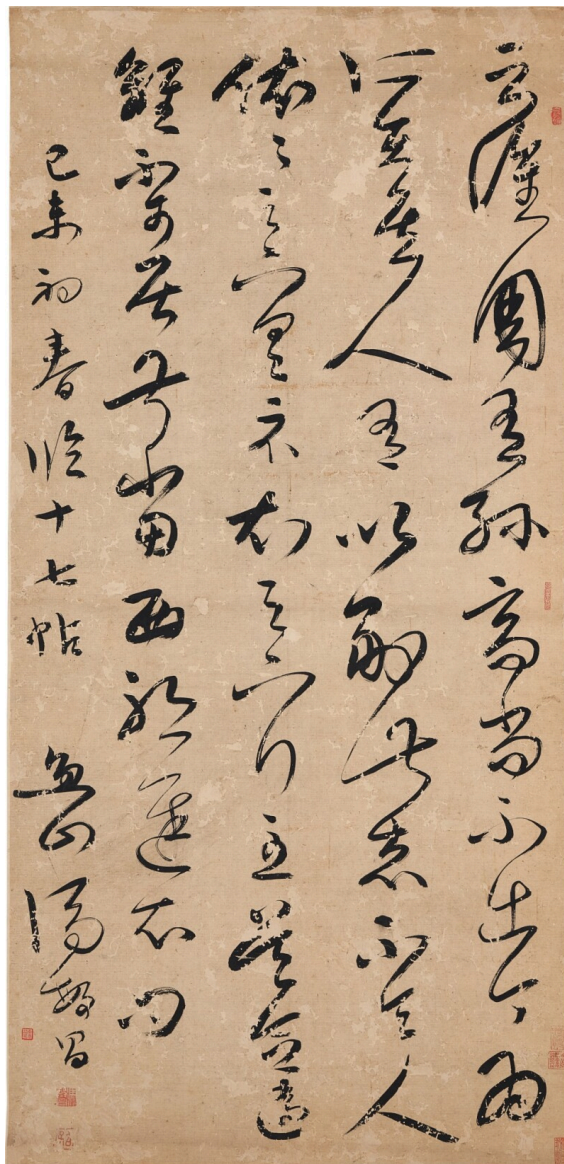 云譙周有孫高尚不出今為
所在其人有以副此志不令人
依依足下具示知足下行至吳念違
離不可居叔當西耶遲知問
己未初春臨十七帖 魚山馮敏昌